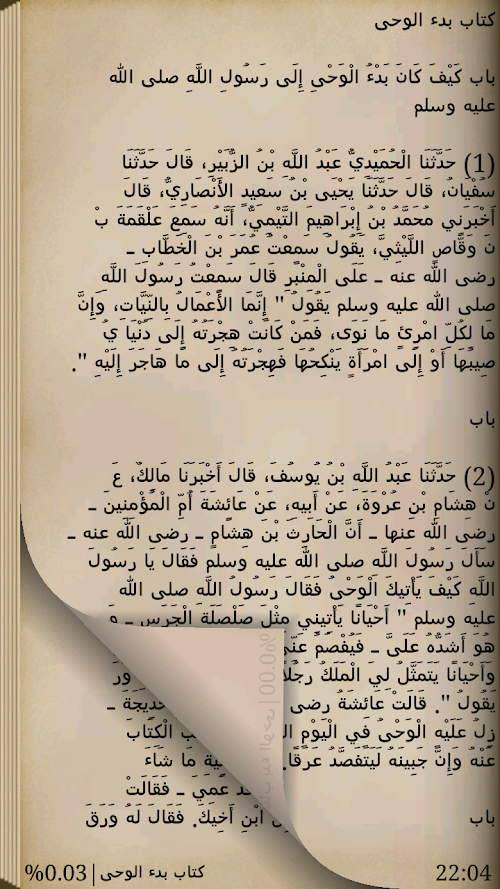 كتاب بدء الوحى
باب كَيْفَ كَانَ بَدْءُ الْوَحْىِ إِلَى رَسُولِ اللَّهِ صلى الله
عليه وسلم
(1) حَدَّثَنَا الْحُمَيْدِيُّ عَبْدُ اللَّهِ بْنُ الزُّبَيْرِ، قَالَ حَدَّثَنَا
سُفْيَانُ، قَالَ حَدَّثَنَا يَحْيَى بْنُ سَعِيدٍ الأَنْصَارِيُّ، قَالَ
أَخْبَرَنِي مُحَمَّدُ بْنُ إِبْرَاهِيمَ التَّيْمِيُّ، أَنَّهُ سَمِعَ عَلْقَمَةَ بْ
نَ وَقَّاصٍ اللَّيْثِيَّ، يَقُولُ سَمِعْتُ عُمَرَ بْنَ الْخَطَّابِ ـ
رضى الله عنه ـ عَلَى الْمِنْبَرِ قَالَ سَمِعْتُ رَسُولَ اللَّهِ
صلى الله عليه وسلم يَقُولُ " إِنَّمَا الأَعْمَالُ بِالنِّيَّاتِ، وَإِنَّ
مَا لِكُلِّ امْرِئٍ مَا نَوَى، فَمَنْ كَانَتْ هِجْرَتُهُ إِلَى دُنْيَا يُ
صِيبُهَا أَوْ إِلَى امْرَأَةٍ يَنْكِحُهَا فَهِجْرَتُهُ إِلَى مَا هَاجَرَ إِلَيْهِ ".
باب
(2) حَدَّثَنَا عَبْدُ اللَّهِ بْنُ يُوسُفَ، قَالَ أَخْبَرَنَا مَالِكٌ، عَ
نْ هِشَامِ بْنِ عُرْوَةَ، عَنْ أَبِيهِ، عَنْ عَائِشَةَ أُمِّ الْمُؤْمِنِينَ ـ
رضى الله عنها ـ أَنَّ الْحَارِثَ بْنَ هِشَامٍ ـ رضى الله عنه ـ
سَأَلَ رَسُولَ اللَّهِ صلى الله عليه وسلم فَقَالَ يَا رَسُولَ
اللَّهِ كَيْفَ يَأْتِيكَ الْوَحْىُ فَقَالَ رَسُولُ اللَّهِ صلى الله
عليه وسلم " أَحْيَانًا يَأْتِينِي مِثْلَ صَلْصَلَةِ الْجَرَسِ ـ وَ
هُوَ أَشَدُّهُ عَلَىَّ ـ فَيُفْصَمُ عَنِّي
وَأَحْيَانًا يَتَمَثَّلُ لِيَ الْمَلَكُ رَجُلاً ور
يَقُولُ ". قَالَتْ عَائِشَةُ رضى خديجة ـ
زِلُ عَلَيْهِ الْوَحْىُ فِي الْيَوْمِ ال ب الْكِتَابَ
عَنْهُ وَإِنَّ جَبِينَهُ لَيَتَفَصَّدُ عَرَقًا. ية مَا شَاءَ
عَمِيَ ـ فَقَالَتْ
باب ابْنِ أَخِيكَ. فَقَالَ لَهُ وَرَقَ
%0.03|كتاب بدء الوحى 22:04